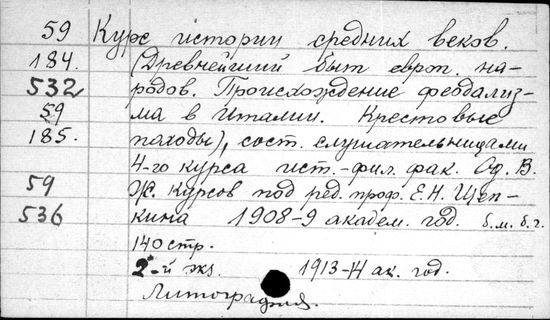 59 Курс истории средних веков.
184. (Древнейший быт европ. на-
532 родов. Происхождение феодализ-
59 ма в Италии. Крестовые
185. походы), сост. слушательницами
4-го курса ист.-фил. фак. Од. В.
59 Ж. курсов под ред. проф. Е.Н. Щеп-
536 кина 1908-9 академ. год. б.м. б.г.
140 стр.
2-й экз. 1913-14 ак. год.
Литография.